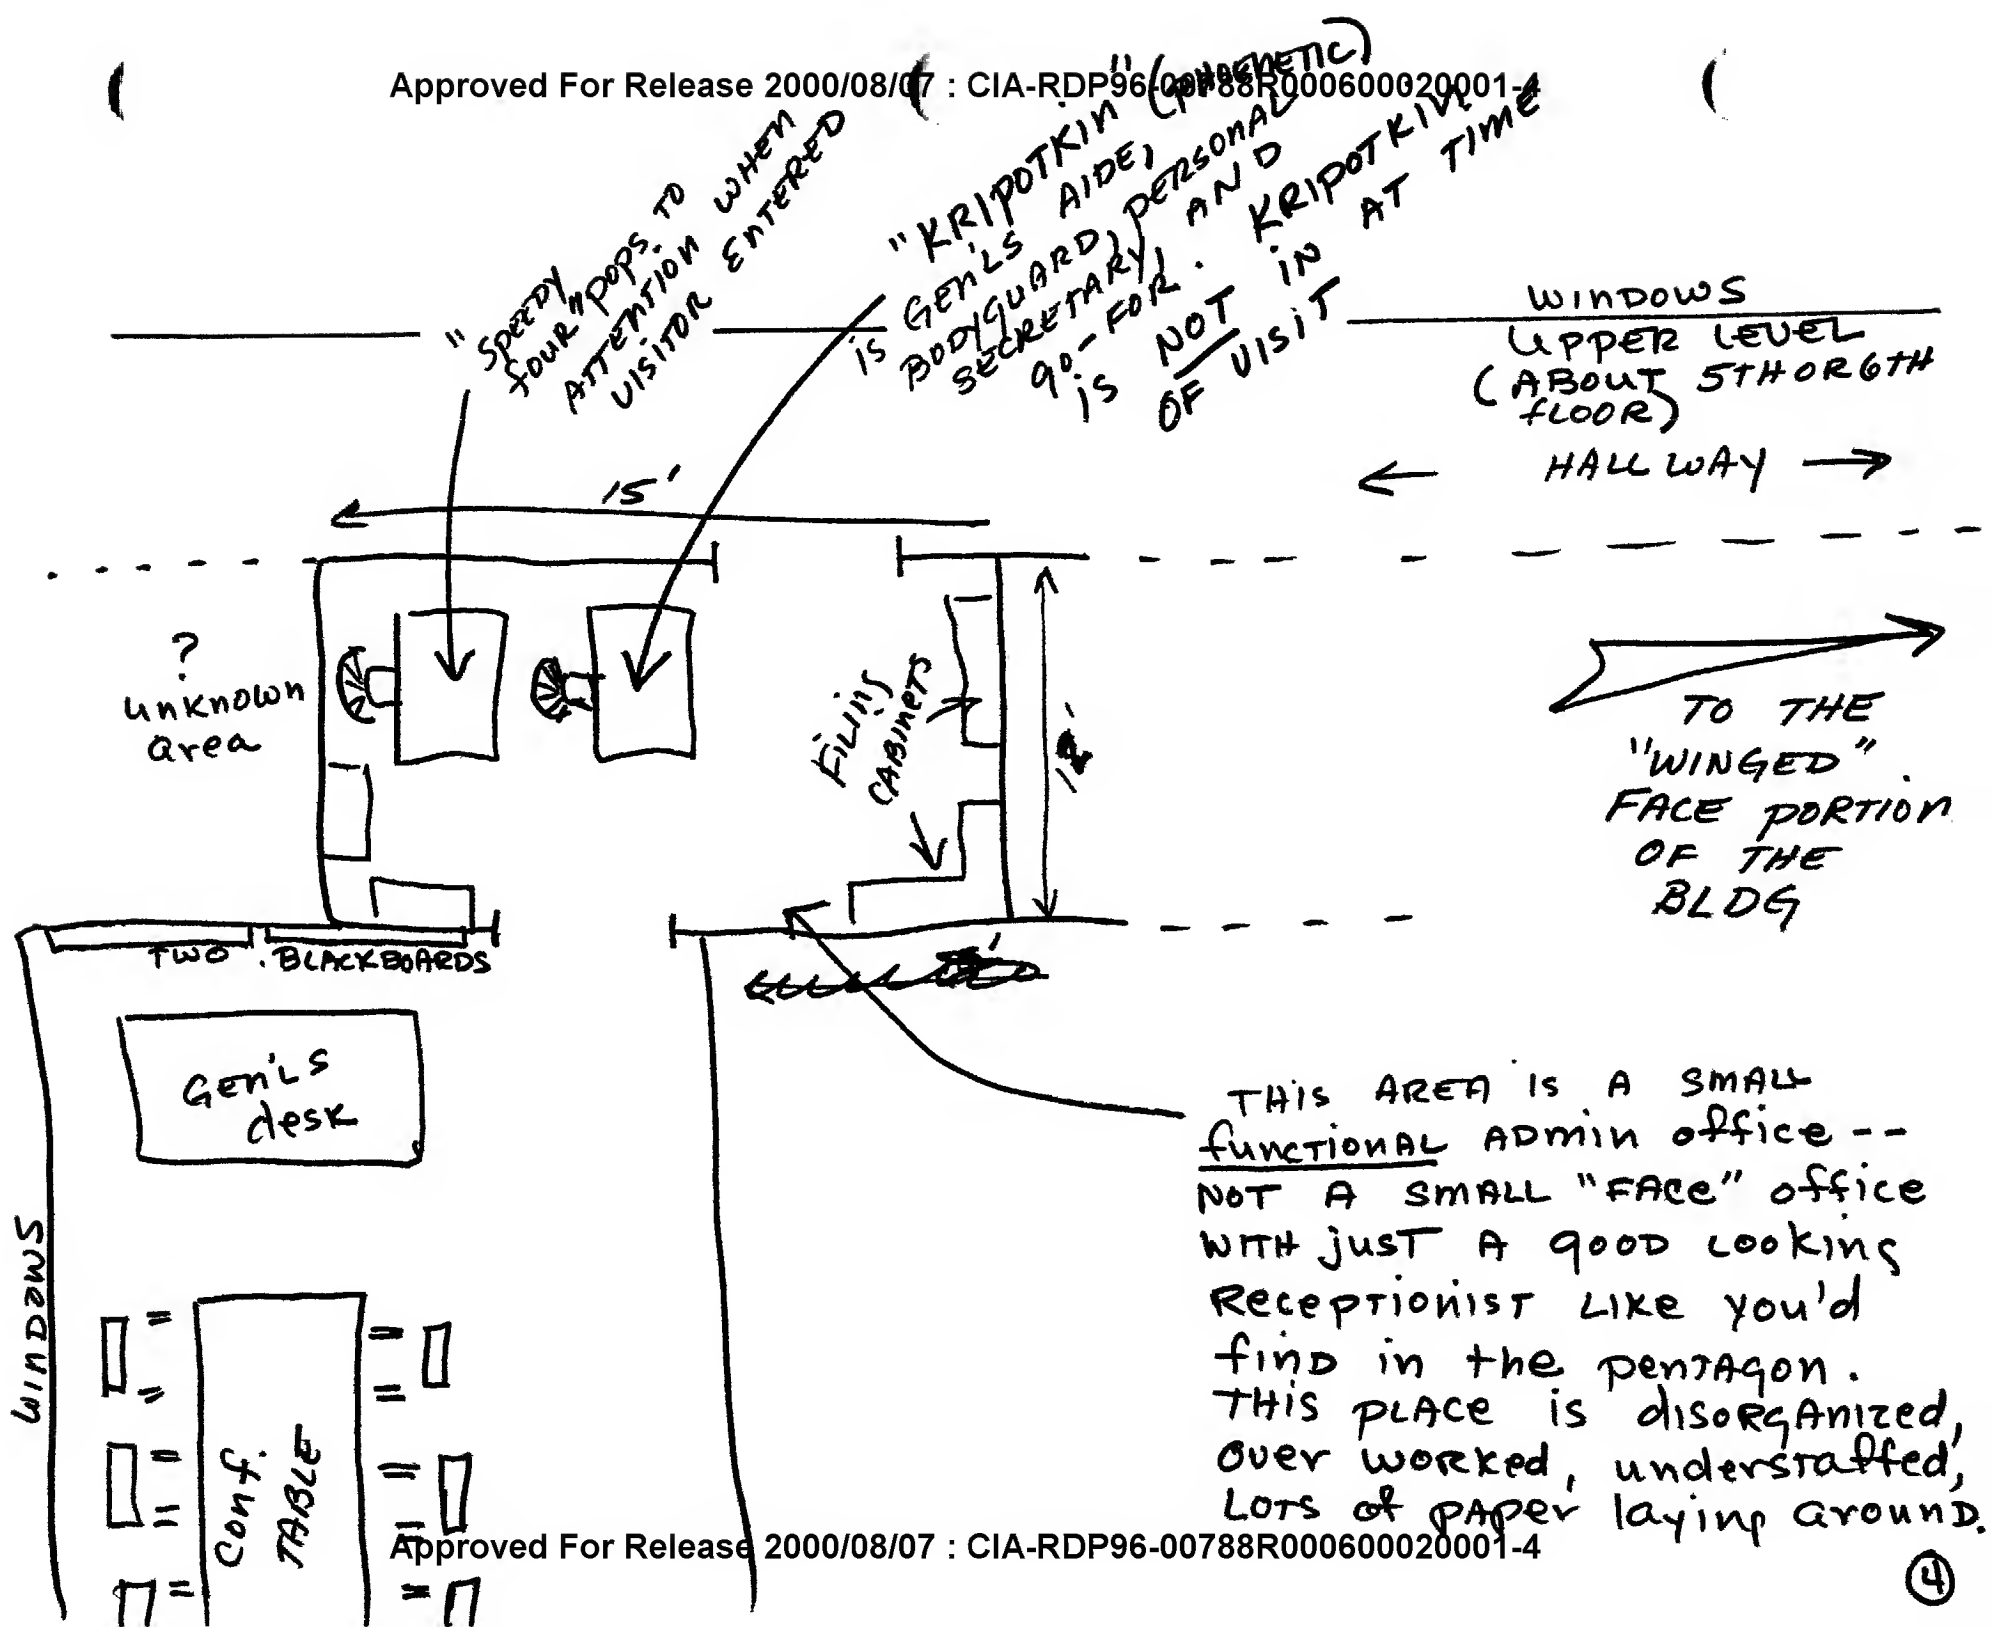 Approved For Release 2000/08/07 : CIA-RDP96-00788R000600020001-4
"SPEEDY
FOUR" POPS TO
ATTENTION WHEN
VISITOR ENTERED
"KRIPOTKIN" (PHOENETIC)
is GEN'LS AIDE,
BODYGUARD, PERSONAL
SECRETARY, AND
GO-FOR. KRIPOTKIN
is NOT IN AT TIME
OF VISIT
WINDOWS
UPPER LEVEL
(ABOUT 5TH OR 6TH
FLOOR)
HALLWAY
15'
?
unknown
area
FILING
CABINETS
TO THE
"WINGED"
FACE PORTION
OF THE
BLDG
TWO BLACKBOARDS
GEN'LS
desk
WINDOWS
Conf.
TABLE
THIS AREA IS A SMALL
functionAL ADMIN office --
NOT A SMALL "FACE" office
WITH just A GOOD LOOKING
RECEPTIONIST LIKE you'd
find in the pentAgon.
THIS PLACE is disorganized,
over worked, understaffed,
LOTS of PAPER laying around.
Approved For Release 2000/08/07 : CIA-RDP96-00788R000600020001-4
4